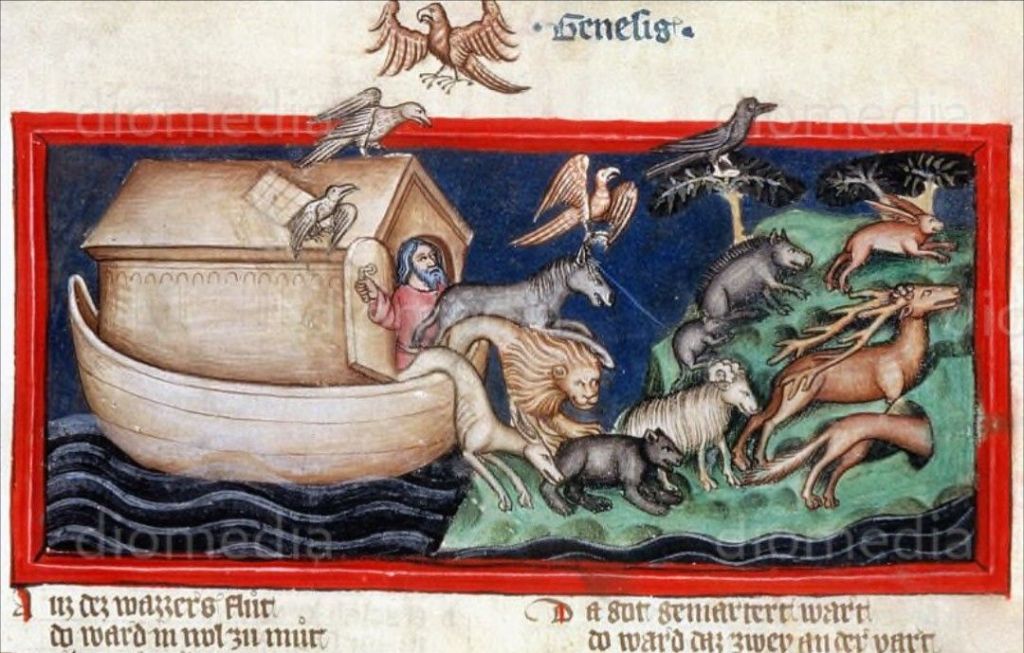 · Genesis ·
diomedia
diomedia
diomedia
diomedia
Auz dez wazzers flut
do ward in wol zu mut
Da got gemartert wart
do ward daz zwey an der vart